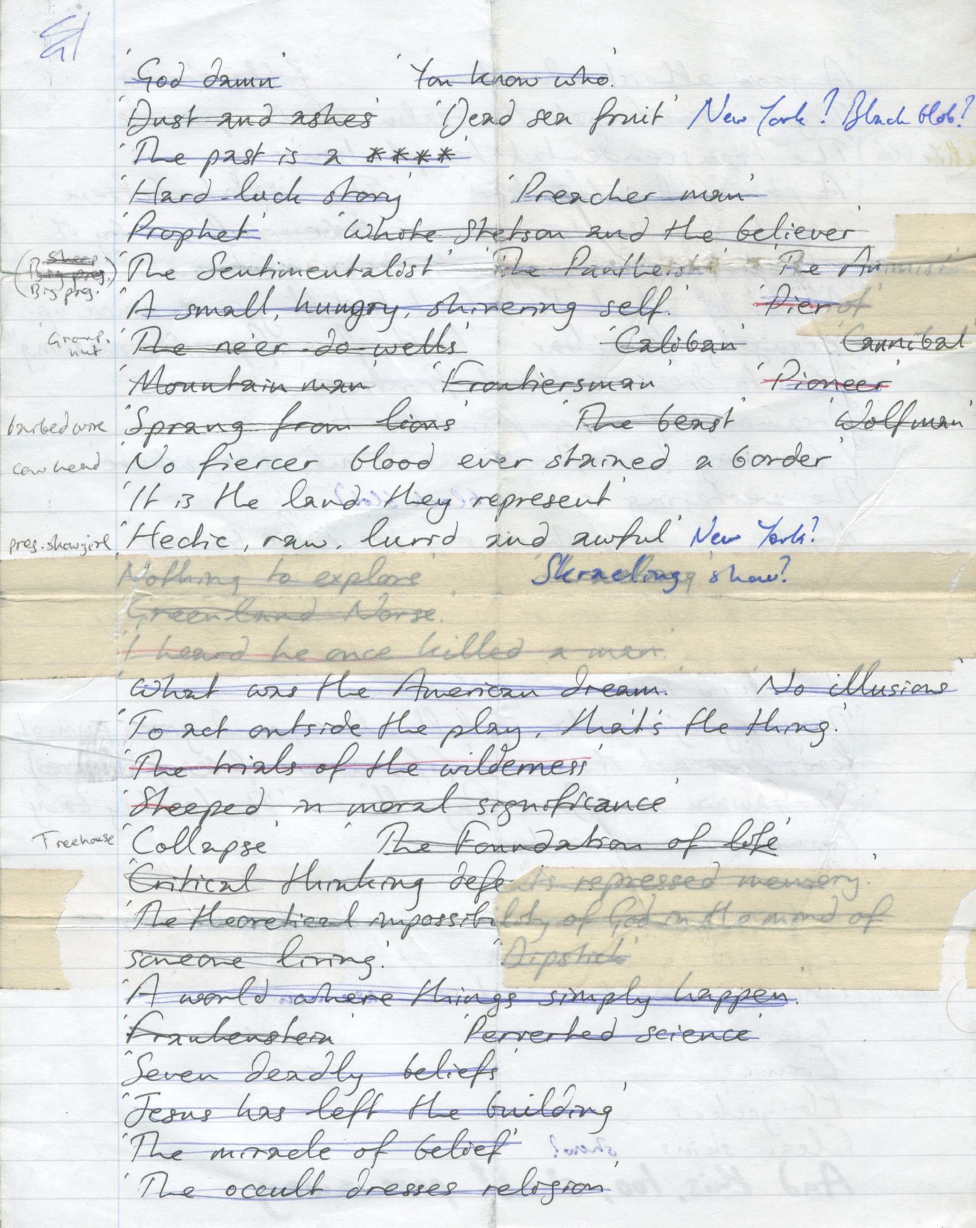 'God damn' 'You know who.'
'Dust and ashes' 'Dead sea fruit' New York? Black blob?
'The past is a ****'
'Hard-luck story' 'Preacher man'
'Prophet' 'White Stetson and the believer'
(Sheep Big pig. Big pig.) 'The Sentimentalist' 'The Pantheist' 'The Animist'
'A small, hungry, shivering self.' 'Pierrot'
Ground nut 'The ne'er-do-wells' 'Caliban' 'Cannibal
'Mountain man' 'Frontiersman' 'Pioneer'
barbed wire 'Sprang from lions' 'The beast' 'Wolfman'
cow head 'No fiercer blood ever stained a border'
'It is the land they represent'
preg. showgirl 'Hectic, raw, lurid and awful' New York?
'Nothing to explore' Skraeling show?
'Greenland Norse.'
'I heard he once killed a man.'
'What was the American dream.' 'No illusions'
'To act outside the play, that's the thing.'
'The trials of the wilderness'
'Steeped in moral significance'
Treehouse 'Collapse' 'The Foundation of life'
'Critical thinking defeats repressed memory.'
'The theoretical impossibility of God in the mind of
someone living.' 'Dipstick'
'A world where things simply happen.'
'Frankenstein' 'Perverted science'
'Seven deadly beliefs'
'Jesus has left the building'
'The miracle of belief' show?
'The occult dresses religion'